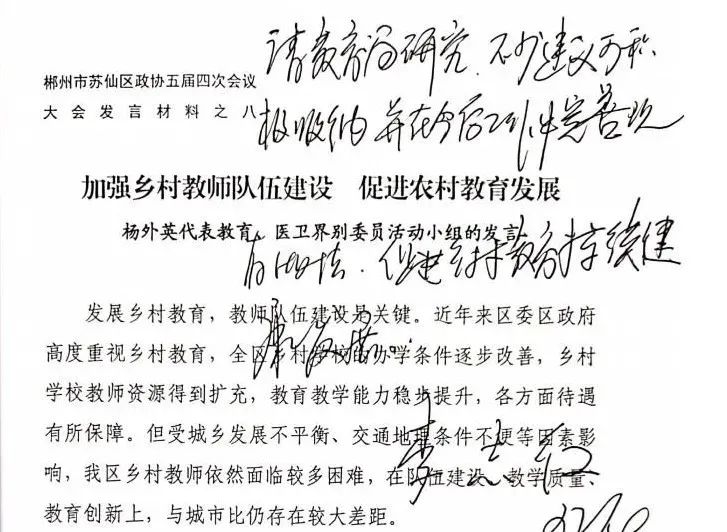 请教育局研究，不少建议可积
郴州市苏仙区政协五届四次会议
大会发言材料之八
极吸纳并在今后工作中完善现
加强乡村教师队伍建设 促进农村教育发展
杨外英代表教育、医卫界别委员活动小组的发言
促进乡村教育持续健
发展乡村教育，教师队伍建设是关键。近年来区委区政府
康发展。
高度重视乡村教育，全区乡村学校办学条件逐步改善，乡村
学校教师资源得到扩充，教育教学能力稳步提升，各方面待遇
有所保障。但受城乡发展不平衡、交通地理条件不便等因素影
响，我区乡村教师依然面临较多困难，在队伍建设、教学质量、
教育创新上，与城市比仍存在较大差距。